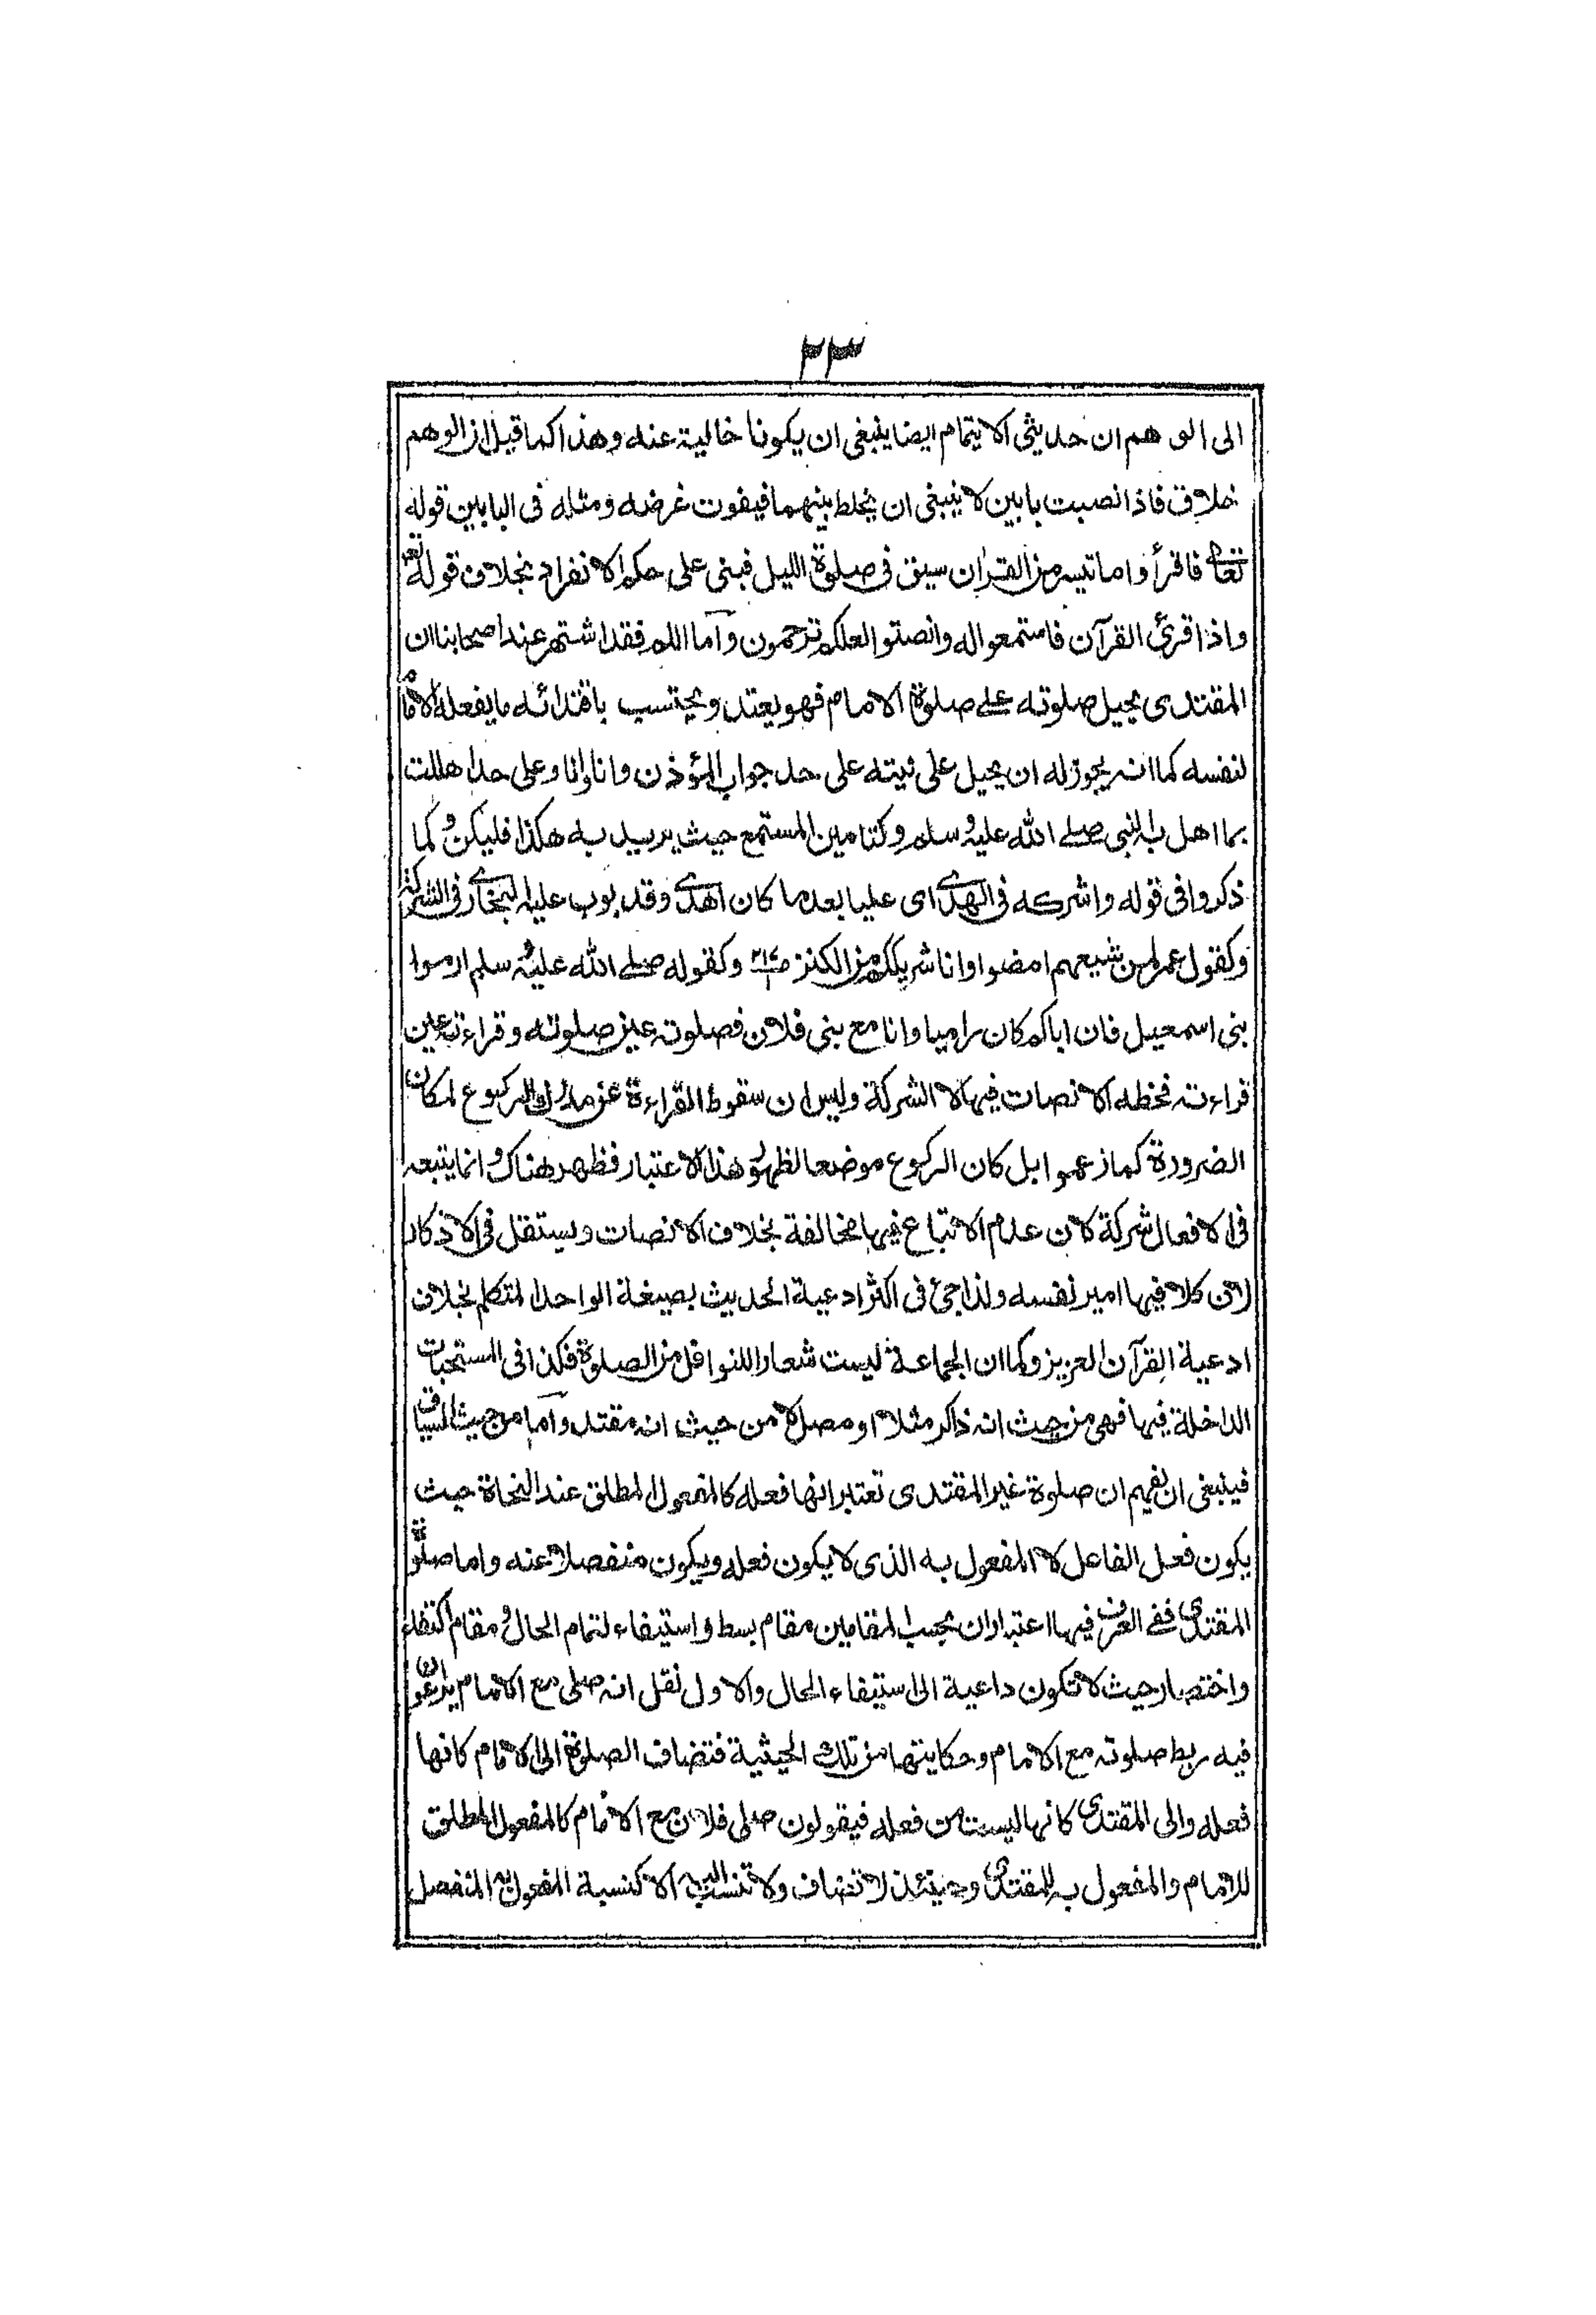 ٢٣
الى الوهم ان حديثى الايتمام ايضا ينبغى ان يكونا خالية عنه وهذا كما قيل ان الوهم
خلاق فاذا نصبت بابين لا ينبغى ان يخلط بينهما فيفوت غرضه ومثله فى البابين قوله
تعالى فاقرأوا ما تيسر من القرآن سيق فى صلوة الليل فبنى على حكم الانفراد بخلاف قوله تعه
واذا قرئ القرآن فاستمعوا له وانصتوا لعلكم ترحمون وأما اللم فقد اشتهر عند اصحابنا ان
المقتدى يحيل صلوته على صلوة الامام فهو يعتد ويحتسب باقتدائه ما يفعله الامام
لنفسه كما انه يجوز له ان يحيل على نيته على حد جواب المؤذن وانا وانا وعلى حد اهللت
بما اهل به النبى صلى الله عليه وسلم وكتامين المستمع حيث يريد به هكذا فليكن وكما
ذكروا فى قوله واشركه فى الهدى اى عليا بعدما كان اهدى وقد بوب عليه البخارى فى الشركة
وكقول عمر لمن شيعهم امضوا وانا شريككم من الكنز وكقوله صلى الله عليه وسلم ارموا
بنى اسمعيل فان اباكم كان راميا وانا مع بنى فلان فصلوته عين صلوته وقراءته عين
قراءته فحظه الانصات فيها لا الشركة وليس ان سقوط القراءة عن مدرك الركوع لمكان
الضرورة كما زعموا بل كان الركوع موضعا لظهور هذا الاعتبار فظهر هناك وانما يتبعه
فى الافعال شركة لان عدم الاتباع فيها مخالفة بخلاف الانصات ويستقل فى الاذكار
لان كلا فيها امير نفسه ولذا جئ فى اكثر ادعية الحديث بصيغة الواحد المتكلم بخلاف
ادعية القرآن العزيز وكما ان الجماعة ليست شعارا للنوافل من الصلوة فكذا فى المستحبات
الداخلة فيها فهى من حيث انه ذاكر مثلا او مصل لا من حيث انه مقتد وأما من حيث السياق
فينبغى ان يفهم ان صلوة غير المقتدى تعتبر انها فعله كالمفعول المطلق عند النحاة حيث
يكون فعل الفاعل لا المفعول به الذى لا يكون فعله ويكون منفصلا عنه واما صلوة
المقتدى ففى العرف فيها اعتباران بحسب المقامين مقام بسط واستيفاء لتمام الحال ومقام اكتفاء
واختصار حيث لا تكون داعية الى استيفاء الحال والاول نقل انه صلى مع الامام يراعون
فيه ربط صلوته مع الامام وحكايتها من تلك الحيثية فتضاف الصلوة الى الامام كانها
فعله والى المقتدى كانها ليست من فعله فيقولون صلى فلان مع الامام كالمفعول المطلق
للامام والمفعول به للمقتدى وحينئذ لا تضاف ولا تنسب اليه الا كنسبة المفعول به المنفصل